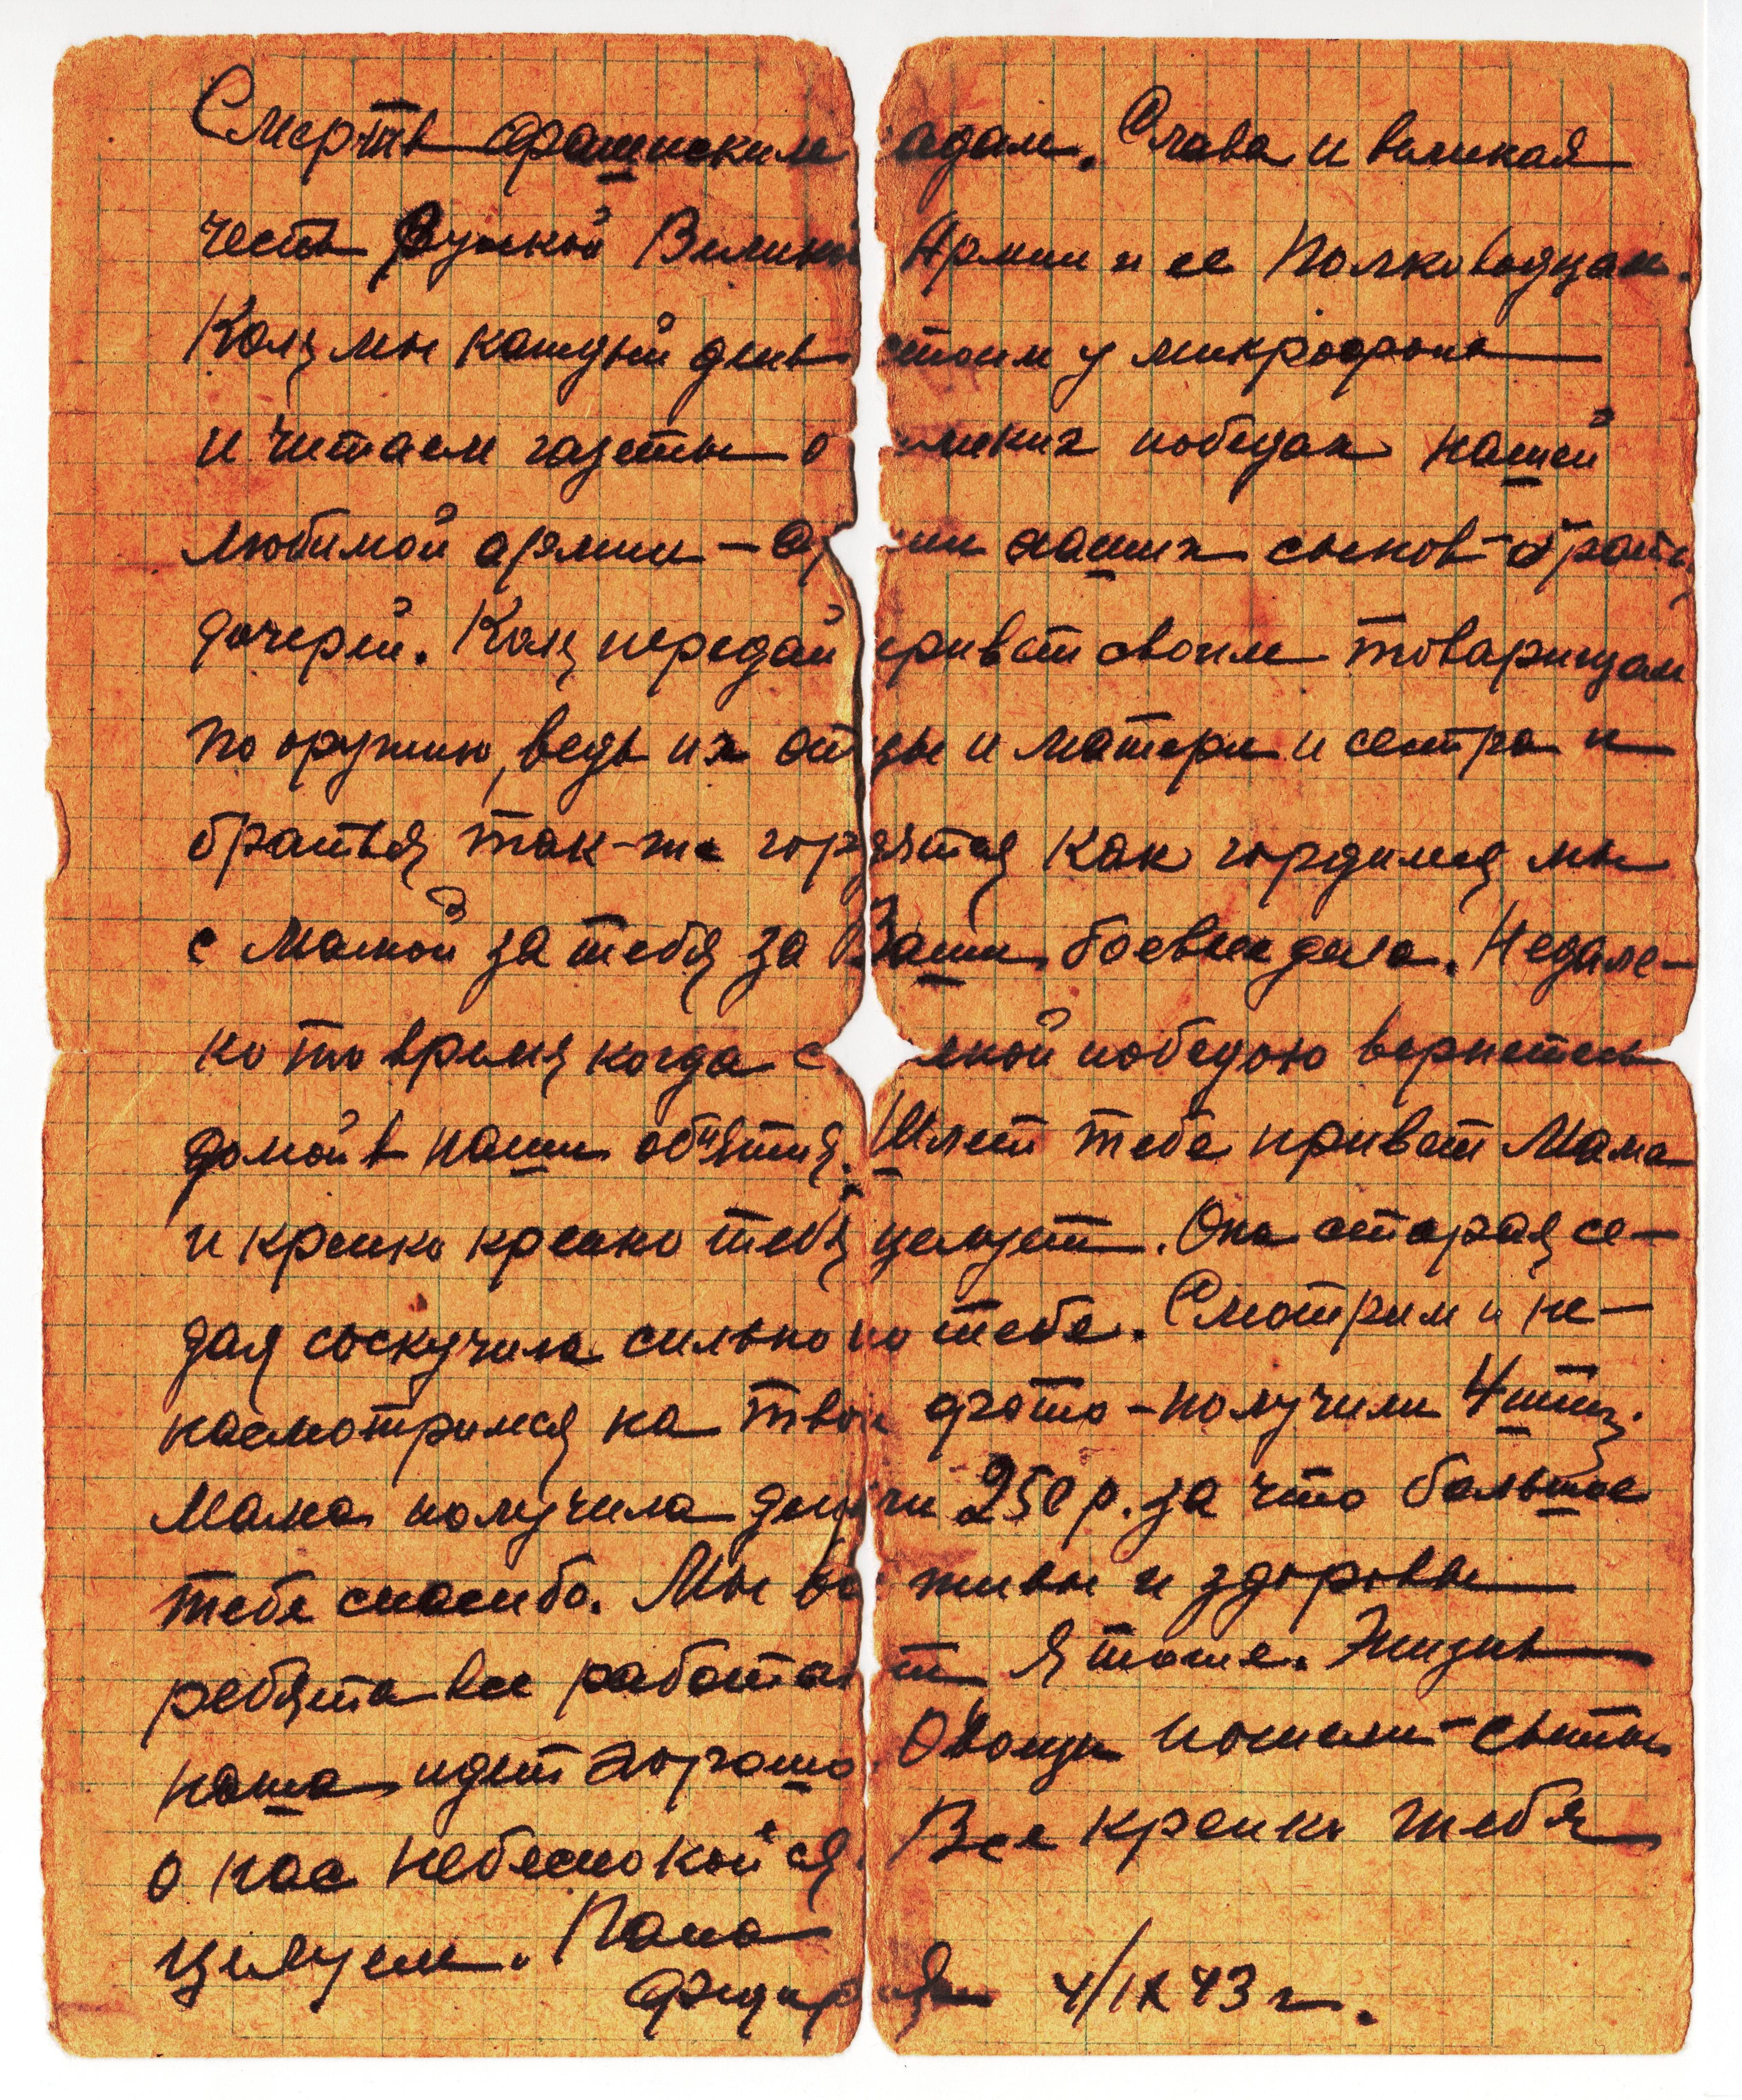 Смерть фашиским адам. Слава и великая
честь Руской Велико Армии и ее Полководцам.
Коля мы каждый день стоим у микрофона
и читаем газеты о ликих победах нашей
любимой армии — ар ии наших сынов-брать
дочерей. Коля передай привет своим товарищам
по оружию, ведь их отцы и матери и сестра и
братья так-же гордятся как гордимся мы
с мамой за тебя за Ваши боевые дела. Недале-
ко то время когда с лной победою вернетесь
домой в наши объятия. Шлет тебе привет Мама
и крепко крепко тебя целует. Она старая се-
дая соскучила сильно по тебе. Смотрим и не-
насмотримся на твои фото — получили 4 штк.
Мама получила деньги 250 р. за что большое
тебе спасибо. Мы все живы и здоровы
ребята все работают Я тоже. Жизнь
наша идет хорошо. Овощи пошли — сыты
о нас небеспокойся. Все крепко тебя
целуем. Папа
4/IX 43 г.